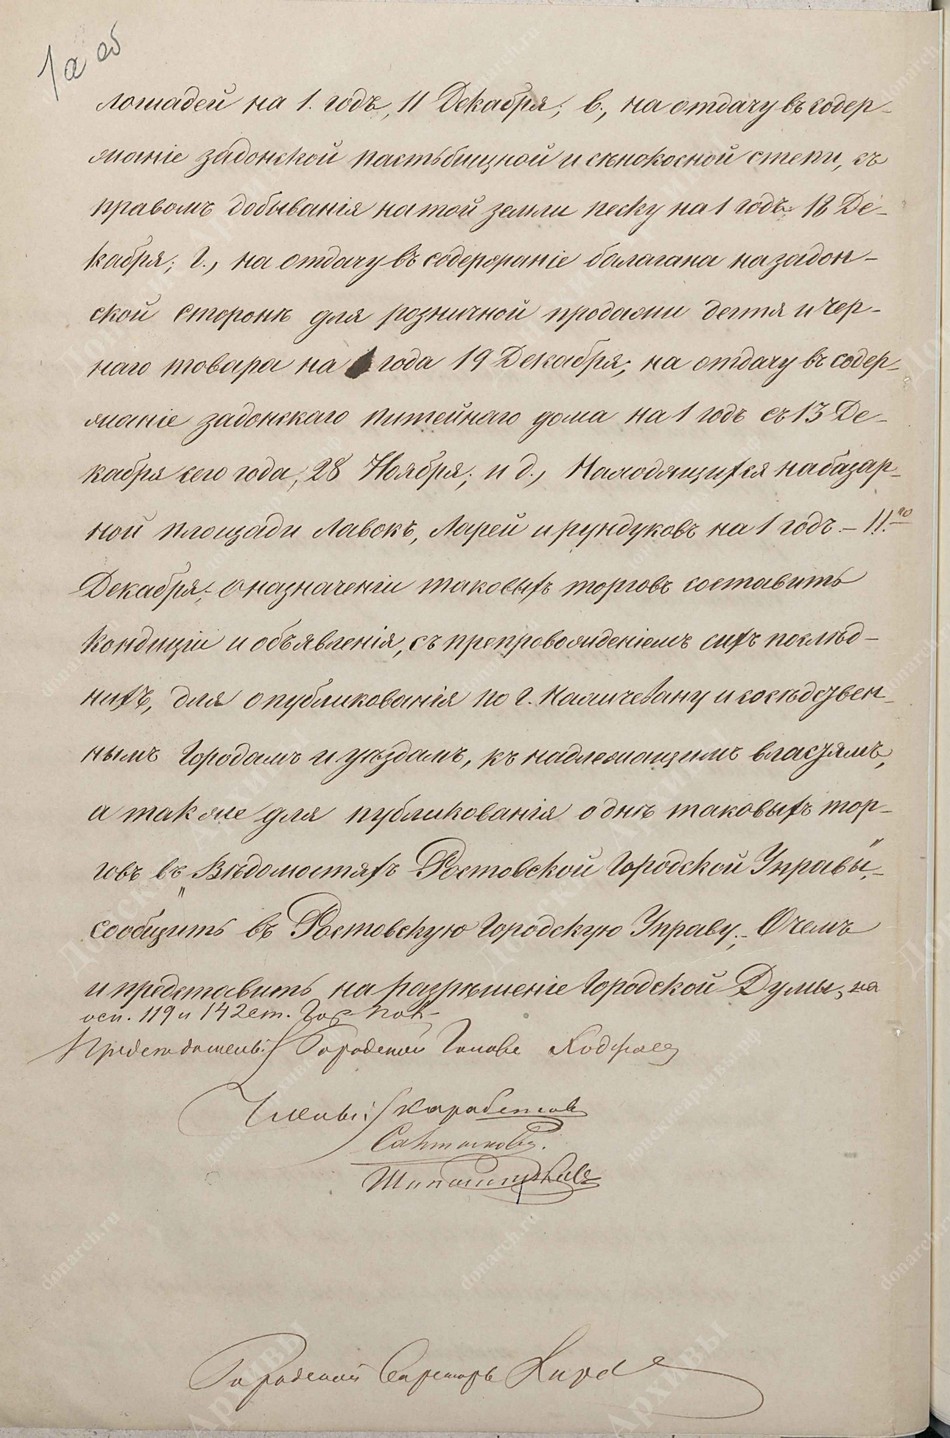 1а об
лошадей на 1. годъ, 11 Декабря; в., на отдачу въ содер-
жаніе задонской пастьбищной и сѣнокосной степи, съ
правомъ добыванія на той земли песку на 1 годъ 18 Де-
кабря; г., на отдачу въ содержаніе балагана на задон-
ской сторонѣ для розничной продажи дегтя и чер-
наго товара на года 19 Декабря; на отдачу въ содер-
жаніе задонскаго питейнаго дома на 1 годъ съ 13 Де-
кабря сего года, 28 Ноября; и д., Находящихся на базар-
ной площади Лавокъ, Ларей и рундуковъ на 1 годъ – 11го
Декабря; о назначеніи таковыхъ торговъ составить
кондиціи и объявленія, съ препровожденіемъ сихъ послѣд-
нихъ, для опубликованія по г. Нахичевану и сосѣдствен-
нымъ Городамъ и уѣздамъ, къ надлежащимъ властямъ,
а также для публикованія о днѣ таковыхъ тор-
говъ въ "Вѣдомостяхъ Ростовской Городской Управы",
сообщить въ Ростовскую Городскую Управу; О чемъ
и представить на разрѣшеніе Городской Думы, на
осн. 119 и 142 ст. Гор. Пол.
Предсѣдатель: Городской Голова Ходжаев
Члены: Карабетовъ
Салтыковъ.
Городской Секретарь